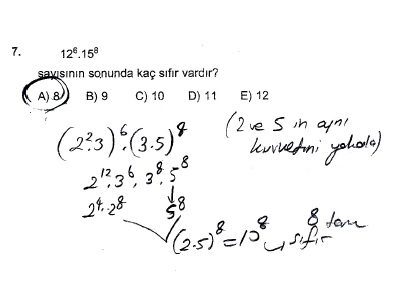 7. 12⁶.15⁸
sayısının sonunda kaç sıfır vardır?
A) 8 B) 9 C) 10 D) 11 E) 12
(2².3)⁶.(3.5)⁸
(2 ve 5 in aynı
kuvvetini yakala)
2¹².3⁶.3⁸.5⁸
2⁴.2⁸ 5⁸
(2.5)⁸=10⁸ 8 tane
sıfır